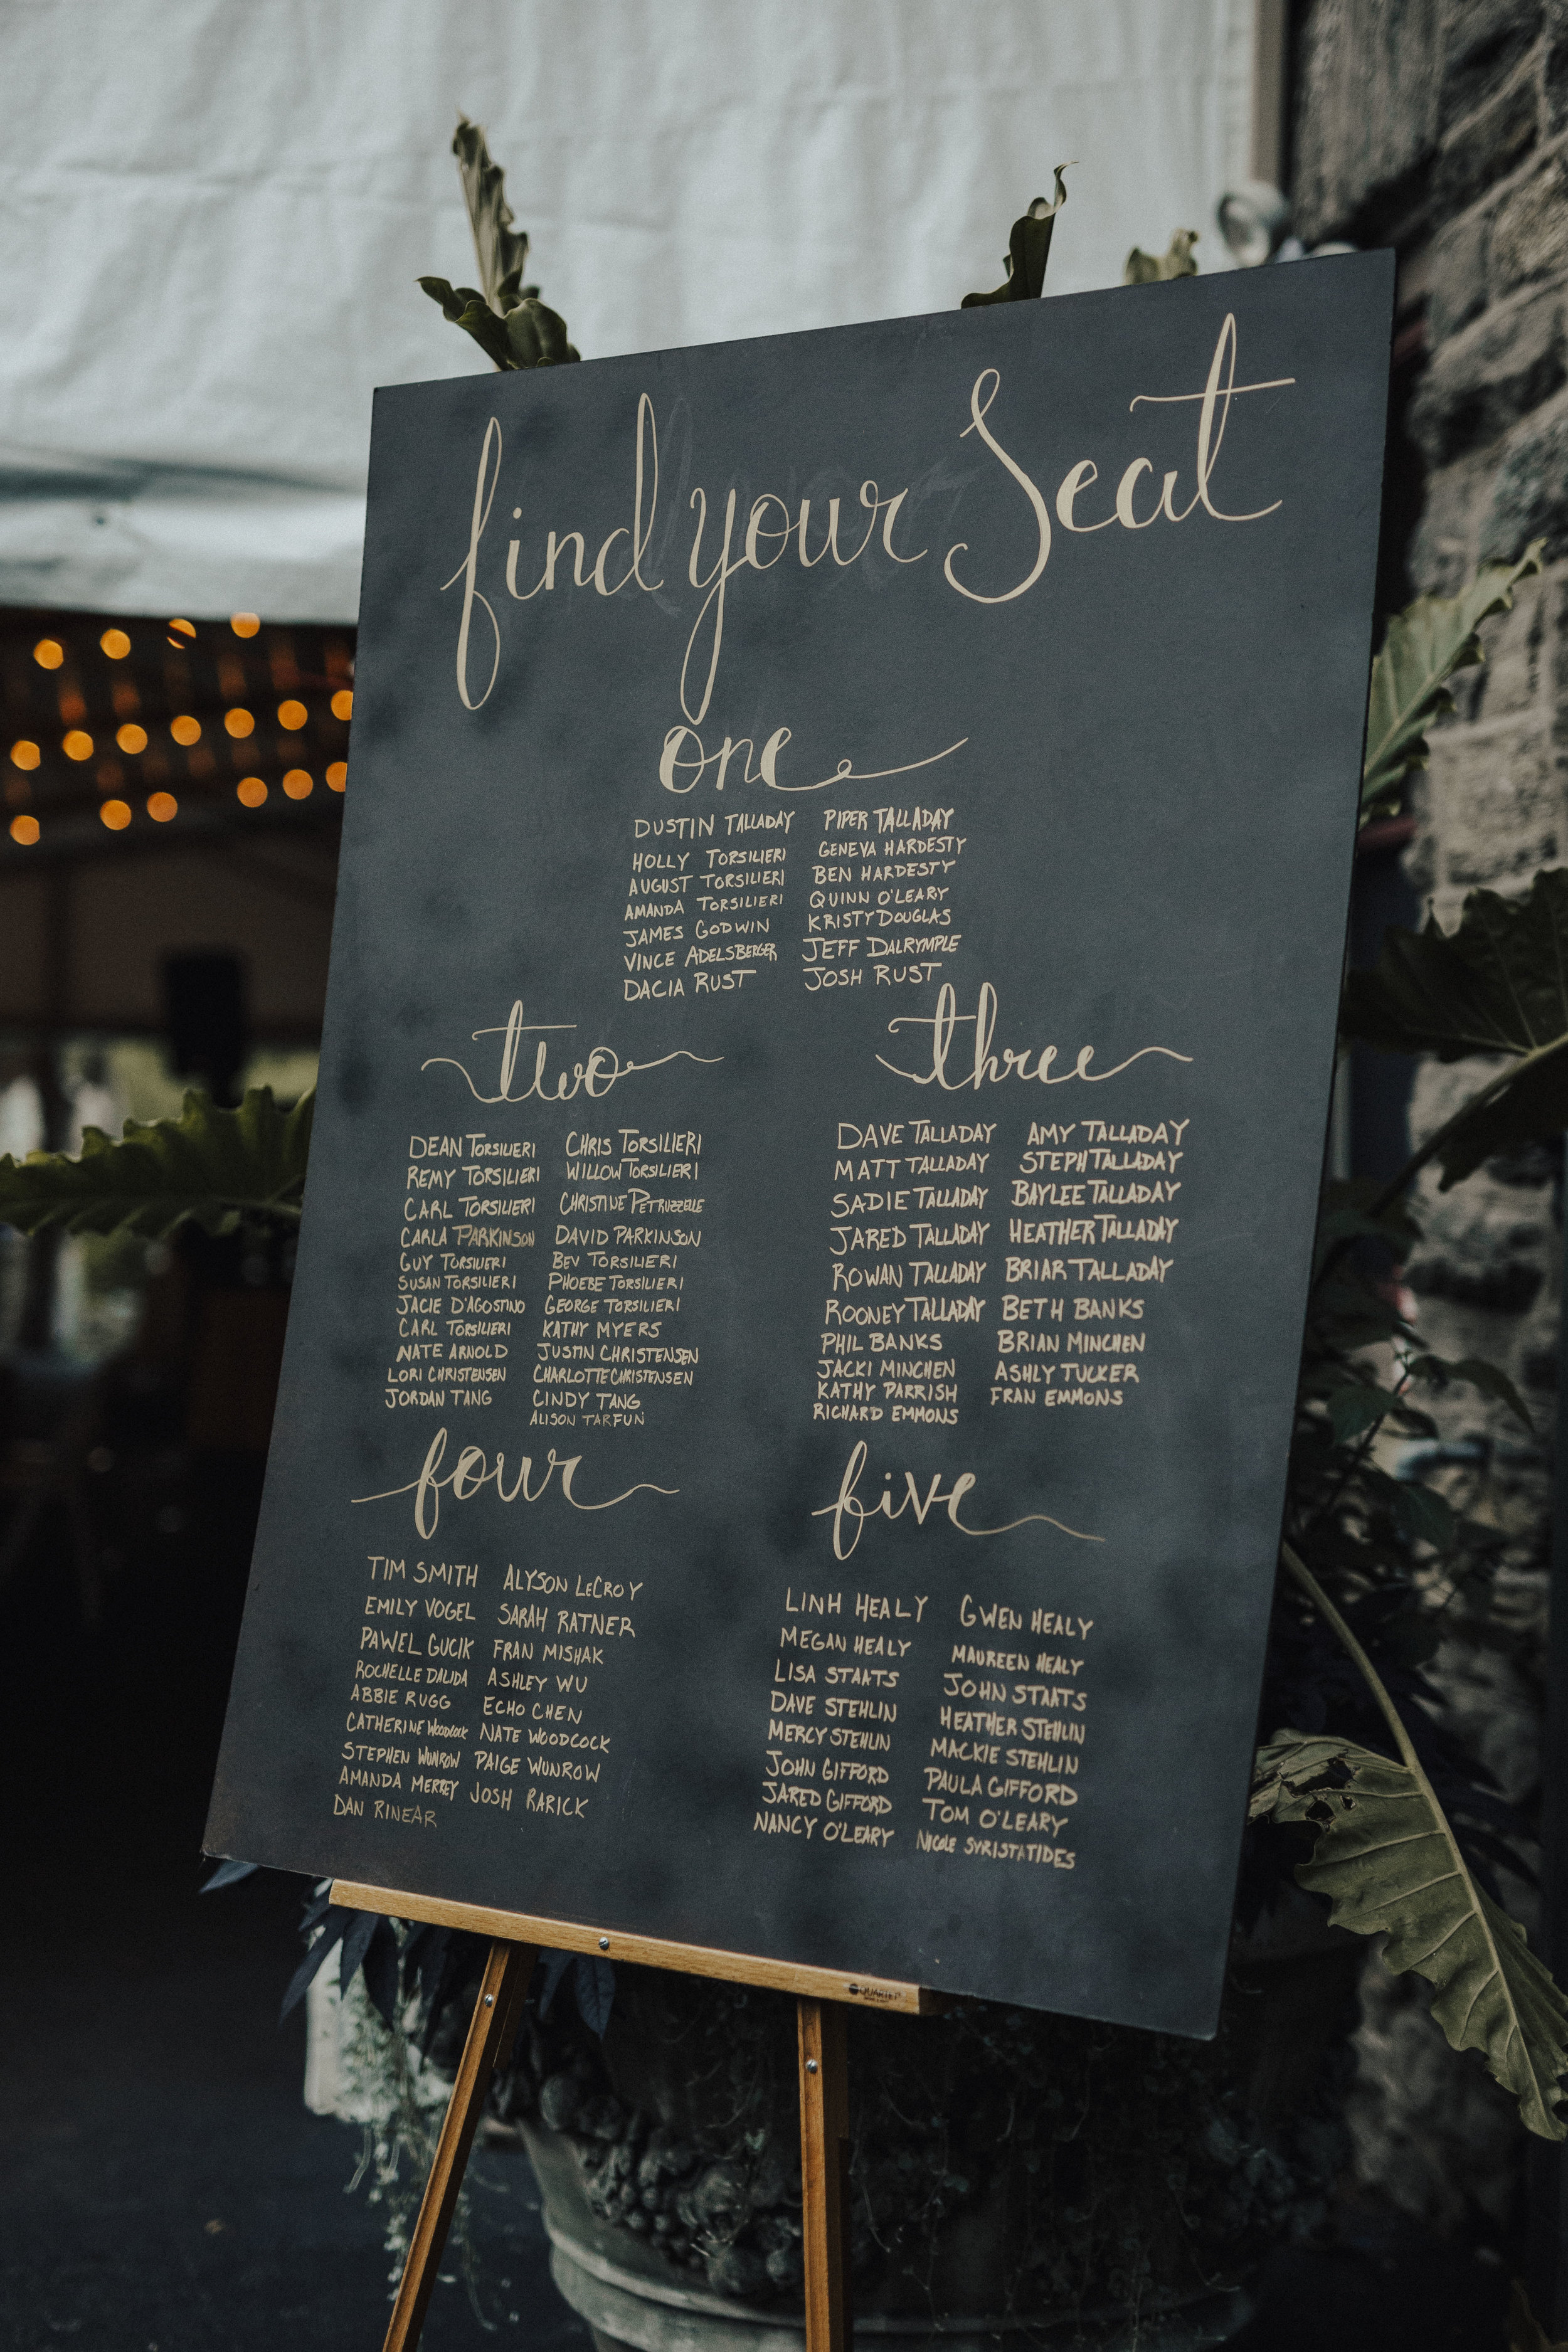 find your Seat
one
DUSTIN TALLADAY PIPER TALLADAY
HOLLY TORSILIERI GENEVA HARDESTY
AUGUST TORSILIERI BEN HARDESTY
AMANDA TORSILIERI QUINN O'LEARY
JAMES GODWIN KRISTY DOUGLAS
VINCE ADELSBERGER JEFF DALRYMPLE
DACIA RUST JOSH RUST
two
DEAN TORSILIERI CHRIS TORSILIERI
REMY TORSILIERI WILLOW TORSILIERI
CARL TORSILIERI CHRISTINE PETRUZZELLE
CARLA PARKINSON DAVID PARKINSON
GUY TORSILIERI BEV TORSILIERI
SUSAN TORSILIERI PHOEBE TORSILIERI
JACIE D'AGOSTINO GEORGE TORSILIERI
CARL TORSILIERI KATHY MYERS
NATE ARNOLD JUSTIN CHRISTENSEN
LORI CHRISTENSEN CHARLOTTE CHRISTENSEN
JORDAN TANG CINDY TANG
ALISON TARFUN
three
DAVE TALLADAY AMY TALLADAY
MATT TALLADAY STEPH TALLADAY
SADIE TALLADAY BAYLEE TALLADAY
JARED TALLADAY HEATHER TALLADAY
ROWAN TALLADAY BRIAR TALLADAY
ROONEY TALLADAY BETH BANKS
PHIL BANKS BRIAN MINCHEN
JACKI MINCHEN ASHLY TUCKER
KATHY PARRISH FRAN EMMONS
RICHARD EMMONS
four
TIM SMITH ALYSON LeCROY
EMILY VOGEL SARAH RATNER
PAWEL GUCIK FRAN MISHAK
ROCHELLE DALIDA ASHLEY WU
ABBIE RUGG ECHO CHEN
CATHERINE Woodcock NATE WOODCOCK
STEPHEN WUNROW PAIGE WUNROW
AMANDA MERREY JOSH RARICK
DAN RINEAR
five
LINH HEALY GWEN HEALY
MEGAN HEALY MAUREEN HEALY
LISA STAATS JOHN STAATS
DAVE STEHLIN HEATHER STEHLIN
MERCY STEHLIN MACKIE STEHLIN
JOHN GIFFORD PAULA GIFFORD
JARED GIFFORD TOM O'LEARY
NANCY O'LEARY NICOLE SYRISTATIDES
QUARTET